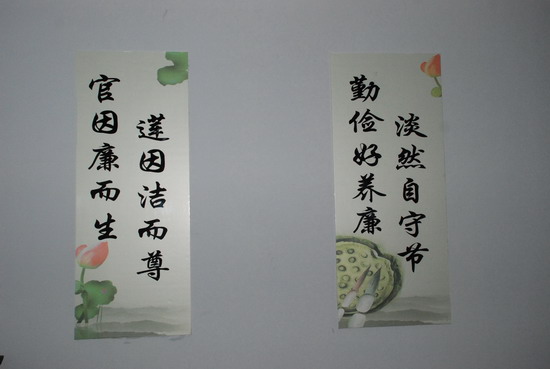 官因廉而生
莲因洁而尊
勤俭好养廉
淡然自守节